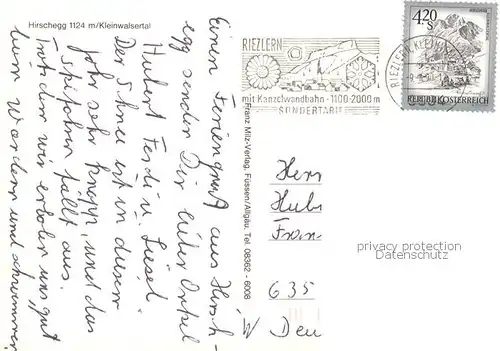 Hirschegg 1124 m/Kleinwalsertal
Einen Feriengruß aus Hirsch-
egg senden Dir lieber Onkel
Hubert Ferdi u. Liesel
Der Schnee ist in diesem
Jahr sehr knapp, und das
Skifahren fällt aus.
Trotzdem wir erholen uns gut
beim wandern und schwimmen
Franz Milz-Verlag, Füssen/Allgäu, Tel. 08362 - 6008
RIEZLERN
mit Kanzelwandbahn - 1100-2000 m
SONDERTARIF
RIEZLERN, KLEINW
4.20
S
REPUBLIK ÖSTERREICH
Herr
Hube
Fran
privacy protection
privacy protection
635
W Deu